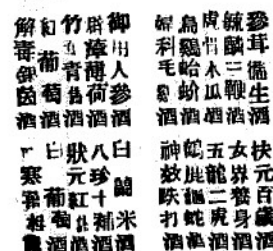 參茸衞生酒
毓麟三鞭酒
虎骨木瓜酒
烏雞蛤蚧酒
婦科毛雞酒
御用人參酒
辟瘴薄荷酒
竹葉青酒
紅葡萄酒
解毒銀茵酒
扶元百歲酒
女界養身酒
五龍二虎酒
鶴鹿龜蛇酒
神效跌打酒
白蘭米酒
八珍十補酒
狀元紅酒
白葡萄酒
寒